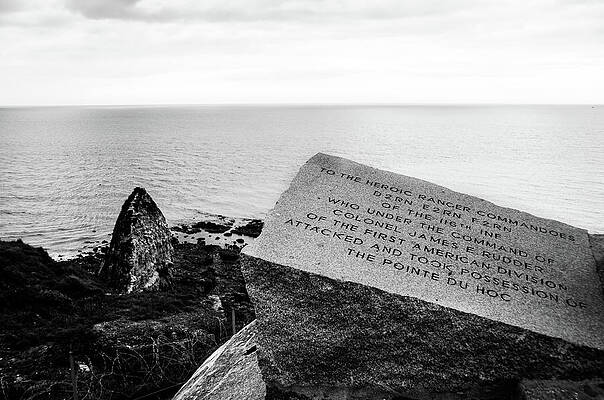 TO THE HEROIC RANGER COMMANDOES
D2RN E2RN F2RN
OF THE 116TH INF
WHO UNDER THE COMMAND OF
COLONEL JAMES E. RUDDER
OF THE FIRST AMERICAN DIVISION
ATTACKED AND TOOK POSSESSION OF
THE POINTE DU HOC